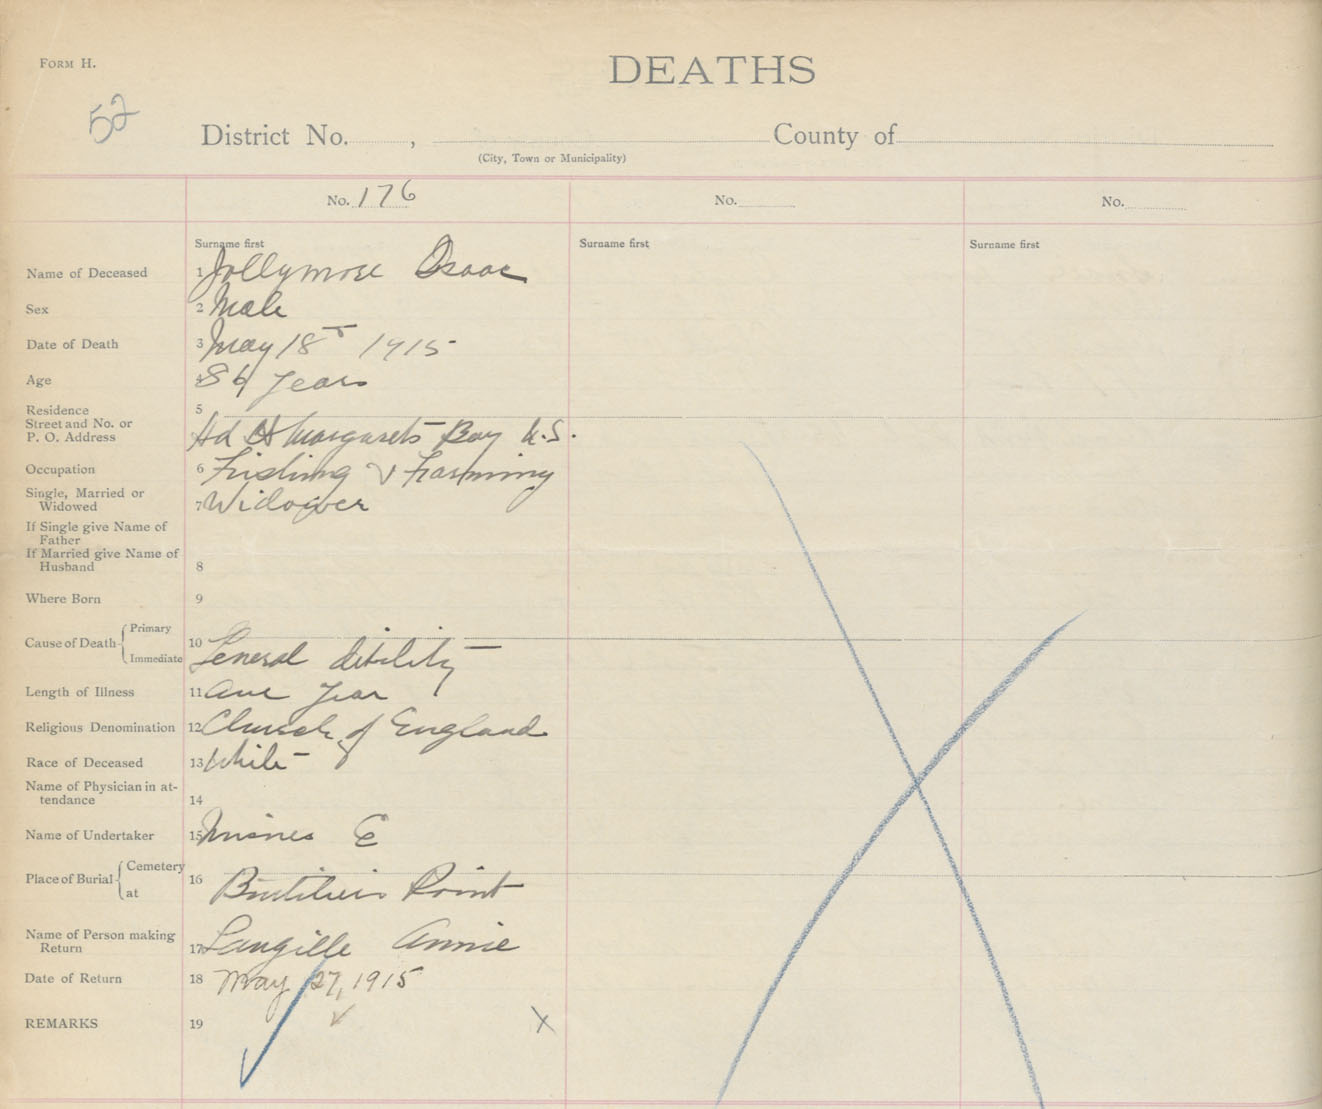 FORM H.
DEATHS
52
District No. , County of
(City, Town or Municipality)
No. 176 No. No.
Surname first Surname first Surname first
Name of Deceased 1 Jollymore Isaac
Sex 2 Male
Date of Death 3 May 18th 1915
Age 4 86 years
Residence 5
Street and No. or
P. O. Address Hd St Margarets Bay N.S.
Occupation 6 Fishing & Farming
Single, Married or
Widowed 7 Widower
If Single give Name of
Father
If Married give Name of
Husband 8
Where Born 9
Cause of Death Primary
10 General debility
Immediate
Length of Illness 11 one year
Religious Denomination 12 Church of England
Race of Deceased 13 White
Name of Physician in at-
tendance 14
Name of Undertaker 15 E
Place of Burial Cemetery
16 Boutiliers Point
at
Name of Person making
Return 17 Langille Annie
Date of Return 18 May 27, 1915
REMARKS 19 X